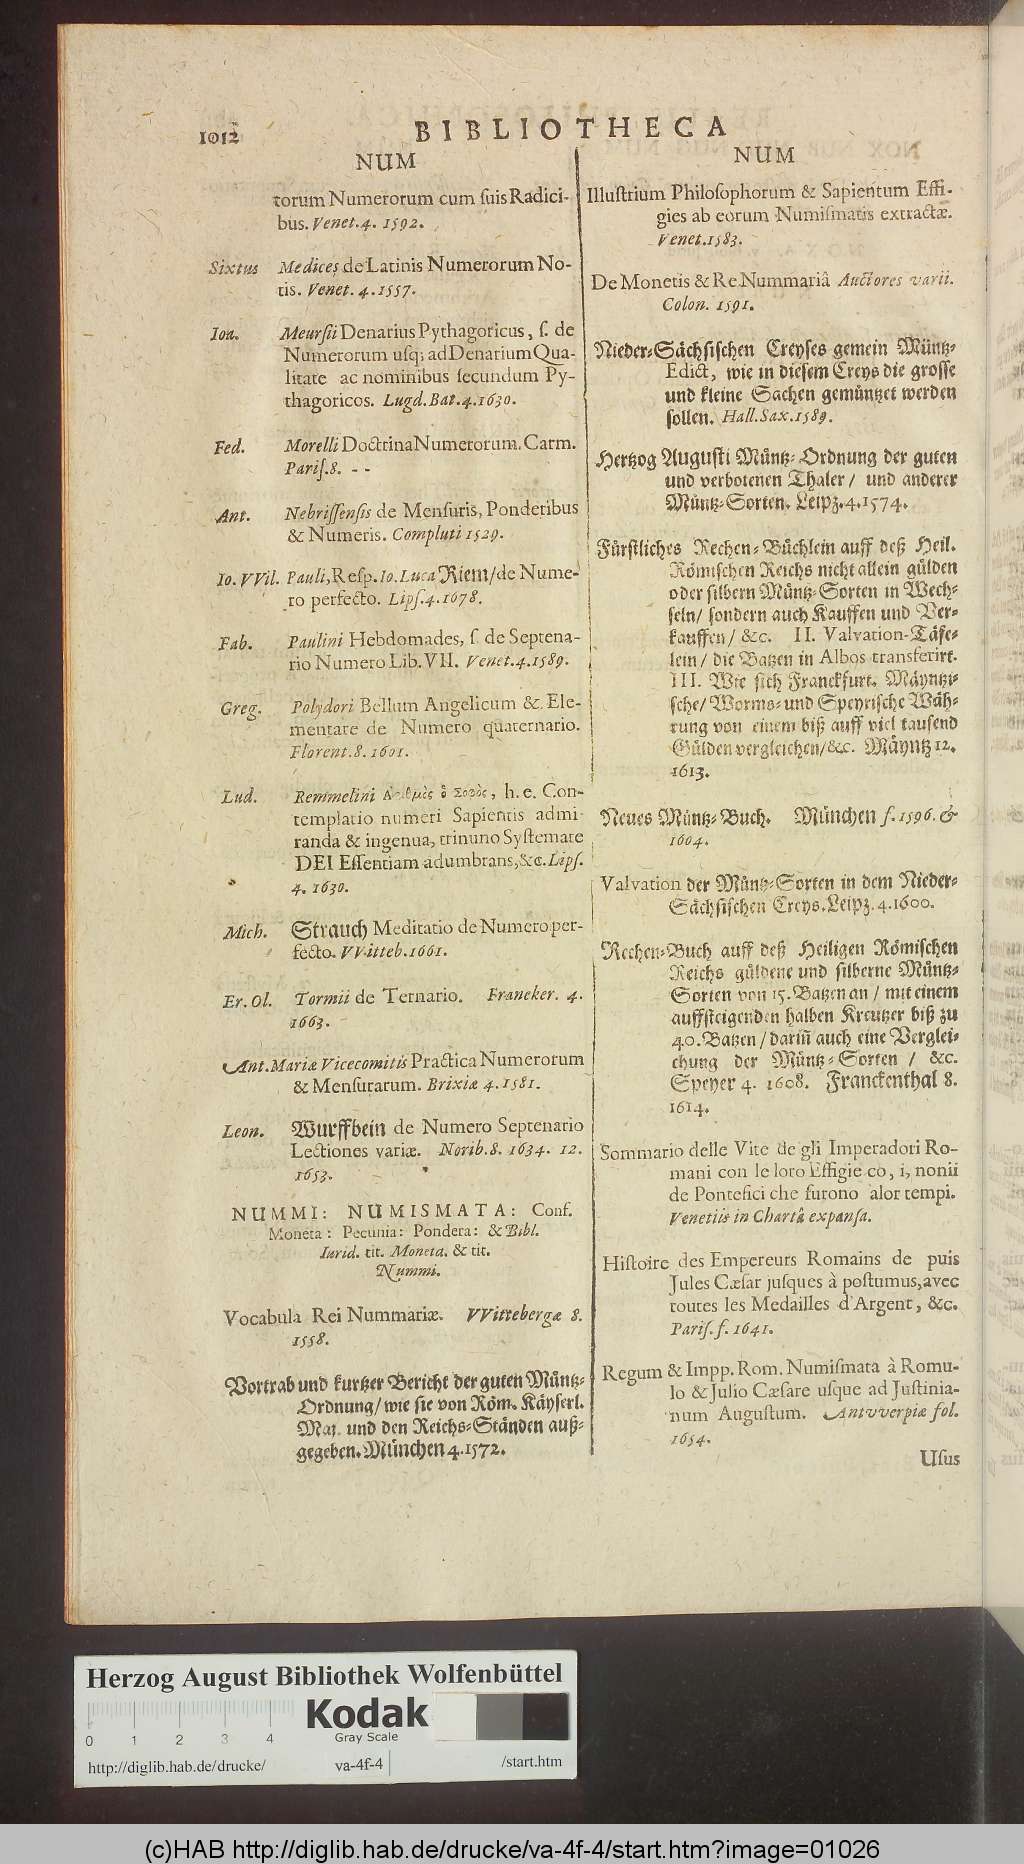 1012
BIBLIOTHECA
NUM
torum Numerorum cum ſuis Radici-
bus. Venet. 4. 1592.
Sixtus Medices de Latinis Numerorum No-
tis. Venet. 4. 1557.
Ioa. Meurſii Denarius Pythagoricus, ſ. de
Numerorum uſq; ad Denarium Qua-
litate ac nominibus ſecundum Py-
thagoricos. Lugd. Bat. 4. 1630.
Fed. Morelli Doctrina Numerorum. Carm.
Pariſ. 8. - -
Ant. Nebriſſenſis de Menſuris, Ponderibus
& Numeris. Compluti 1529.
Io. VVil. Pauli, Reſp. Io. Luca Riem/ de Nume-
ro perfecto. Lipſ. 4. 1678.
Fab. Paulini Hebdomades, ſ. de Septena-
rio Numero Lib. VII. Venet. 4. 1589.
Greg. Polydori Bellum Angelicum & Ele-
mentare de Numero quaternario.
Florent. 8. 1601.
Lud. Remmelini Ἀριθμὸς ὁ Σοφὸς, h. e. Con-
templatio numeri Sapientis admi-
randa & ingenua, trinuno Syſtemate
DEI Eſſentiam adumbrans, &c. Lipſ.
4. 1630.
Mich. Strauch Meditatio de Numero per-
fecto. VVitteb. 1661.
Er. Ol. Tormii de Ternario. Franeker. 4.
1663.
Ant. Mariæ Vicecomitis Practica Numerorum
& Menſurarum. Brixiæ 4. 1581.
Leon. Wurffbein de Numero Septenario
Lectiones variæ. Norib. 8. 1634. 12.
1653.
NUMMI: NUMISMATA: Conf.
Moneta: Pecunia: Pondera: & Bibl.
Iurid. tit. Moneta. & tit.
Nummi.
Vocabula Rei Nummariæ. VVittebergæ 8.
1558.
Vortrab und kurtzer Bericht der guten Müntz-
Ordnung/ wie ſie von Röm. Käyſerl.
Maj. und den Reichs-Ständen auß-
gegeben. München 4. 1572.
NUM
Illuſtrium Philoſophorum & Sapientum Effi-
gies ab eorum Numiſmatis extractæ.
Venet. 1583.
De Monetis & Re Nummariâ Auctores varii.
Colon. 1591.
Nieder-Sächſiſchen Creyſes gemein Müntz-
Edict, wie in dieſem Creys die groſſe
und kleine Sachen gemüntzet werden
ſollen. Hall. Sax. 1589.
Hertzog Auguſti Müntz-Ordnung der guten
und verbotenen Thaler/ und anderer
Müntz-Sorten. Leipz. 4. 1574.
Fürſtliches Rechen-Büchlein auff deß Heil.
Römiſchen Reichs nicht allein gülden
oder ſilbern Müntz-Sorten in Wech-
ſeln/ ſondern auch Kauffen und Ver-
kauffen/ &c. II. Valvation-Täfe-
lein/ die Batzen in Albos transferirt.
III. Wie ſich Franckfurt. Mäyntzi-
ſche/ Worms- und Speyriſche Wäh-
rung von einem biß auff viel tauſend
Gülden vergleichen/ &c. Mäyntz 12.
1613.
Neues Müntz-Buch. München f. 1596. &
1604.
Valvation der Müntz-Sorten in dem Nieder-
Sächſiſchen Creys. Leipz. 4. 1600.
Rechen-Buch auff deß Heiligen Römiſchen
Reichs güldene und ſilberne Müntz-
Sorten von 15. Batzen an/ mit einem
auffſteigenden halben Kreutzer biß zu
40. Batzen/ dariñ auch eine Verglei-
chung der Müntz-Sorten/ &c.
Speyer 4. 1608. Franckenthal 8.
1614.
Sommario delle Vite de gli Imperadori Ro-
mani con le loro Effigie co, i, nonii
de Pontefici che furono alor tempi.
Venetiis in Chartâ expanſa.
Hiſtoire des Empereurs Romains de puis
Jules Cæſar juſques à poſtumus, avec
toutes les Medailles d'Argent, &c.
Pariſ. f. 1641.
Regum & Impp. Rom. Numiſmata à Romu-
lo & Julio Cæſare uſque ad Juſtinia-
num Auguſtum. Antvverpiæ fol.
1654.
Uſus
Herzog August Bibliothek Wolfenbüttel
Kodak
Gray Scale
0 1 2 3 4
http://diglib.hab.de/drucke/ va-4f-4 /start.htm
(c)HAB http://diglib.hab.de/drucke/va-4f-4/start.htm?image=01026